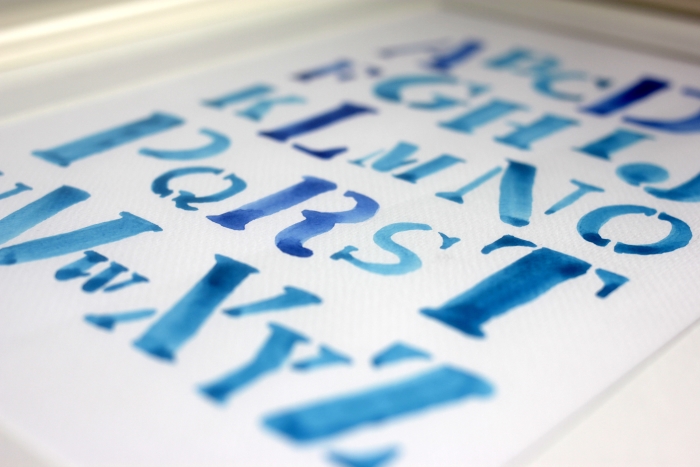 A B C D
F G H I J
K L M N O
P Q R S T
V W X Y Z